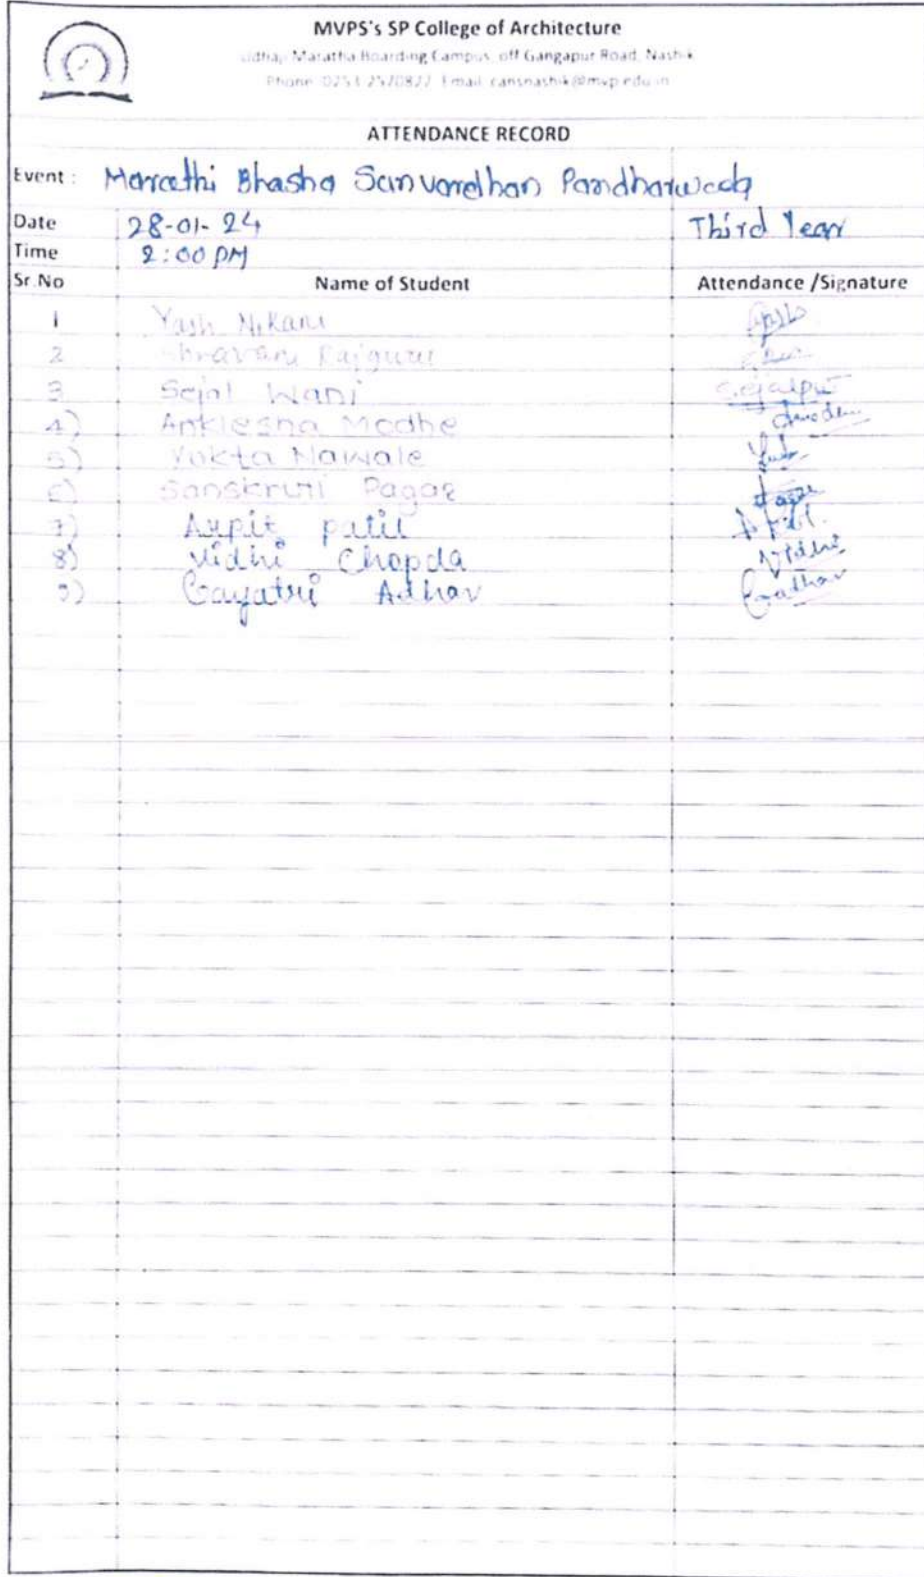 MVPS's SP College of Architecture
Maratha Boarding Campus, off Gangapur Road, Nashik
Phone: 0253 2570822 Email:
ATTENDANCE RECORD
Event : Marathi Bhasha Sanvardhan
Date 28-01-24 Third Year
Time 2:00 PM
Sr.No Name of Student Attendance /Signature
1 Yash
2 Shravani Rajguru
3 Sejal Wani
4) Anklesha Modhe
5) Yukta Nawale
6) Sanskruti Pagar
7) Arpit patil
8) Vidhi Chopda Vidhi
9) Gayatri Adhav